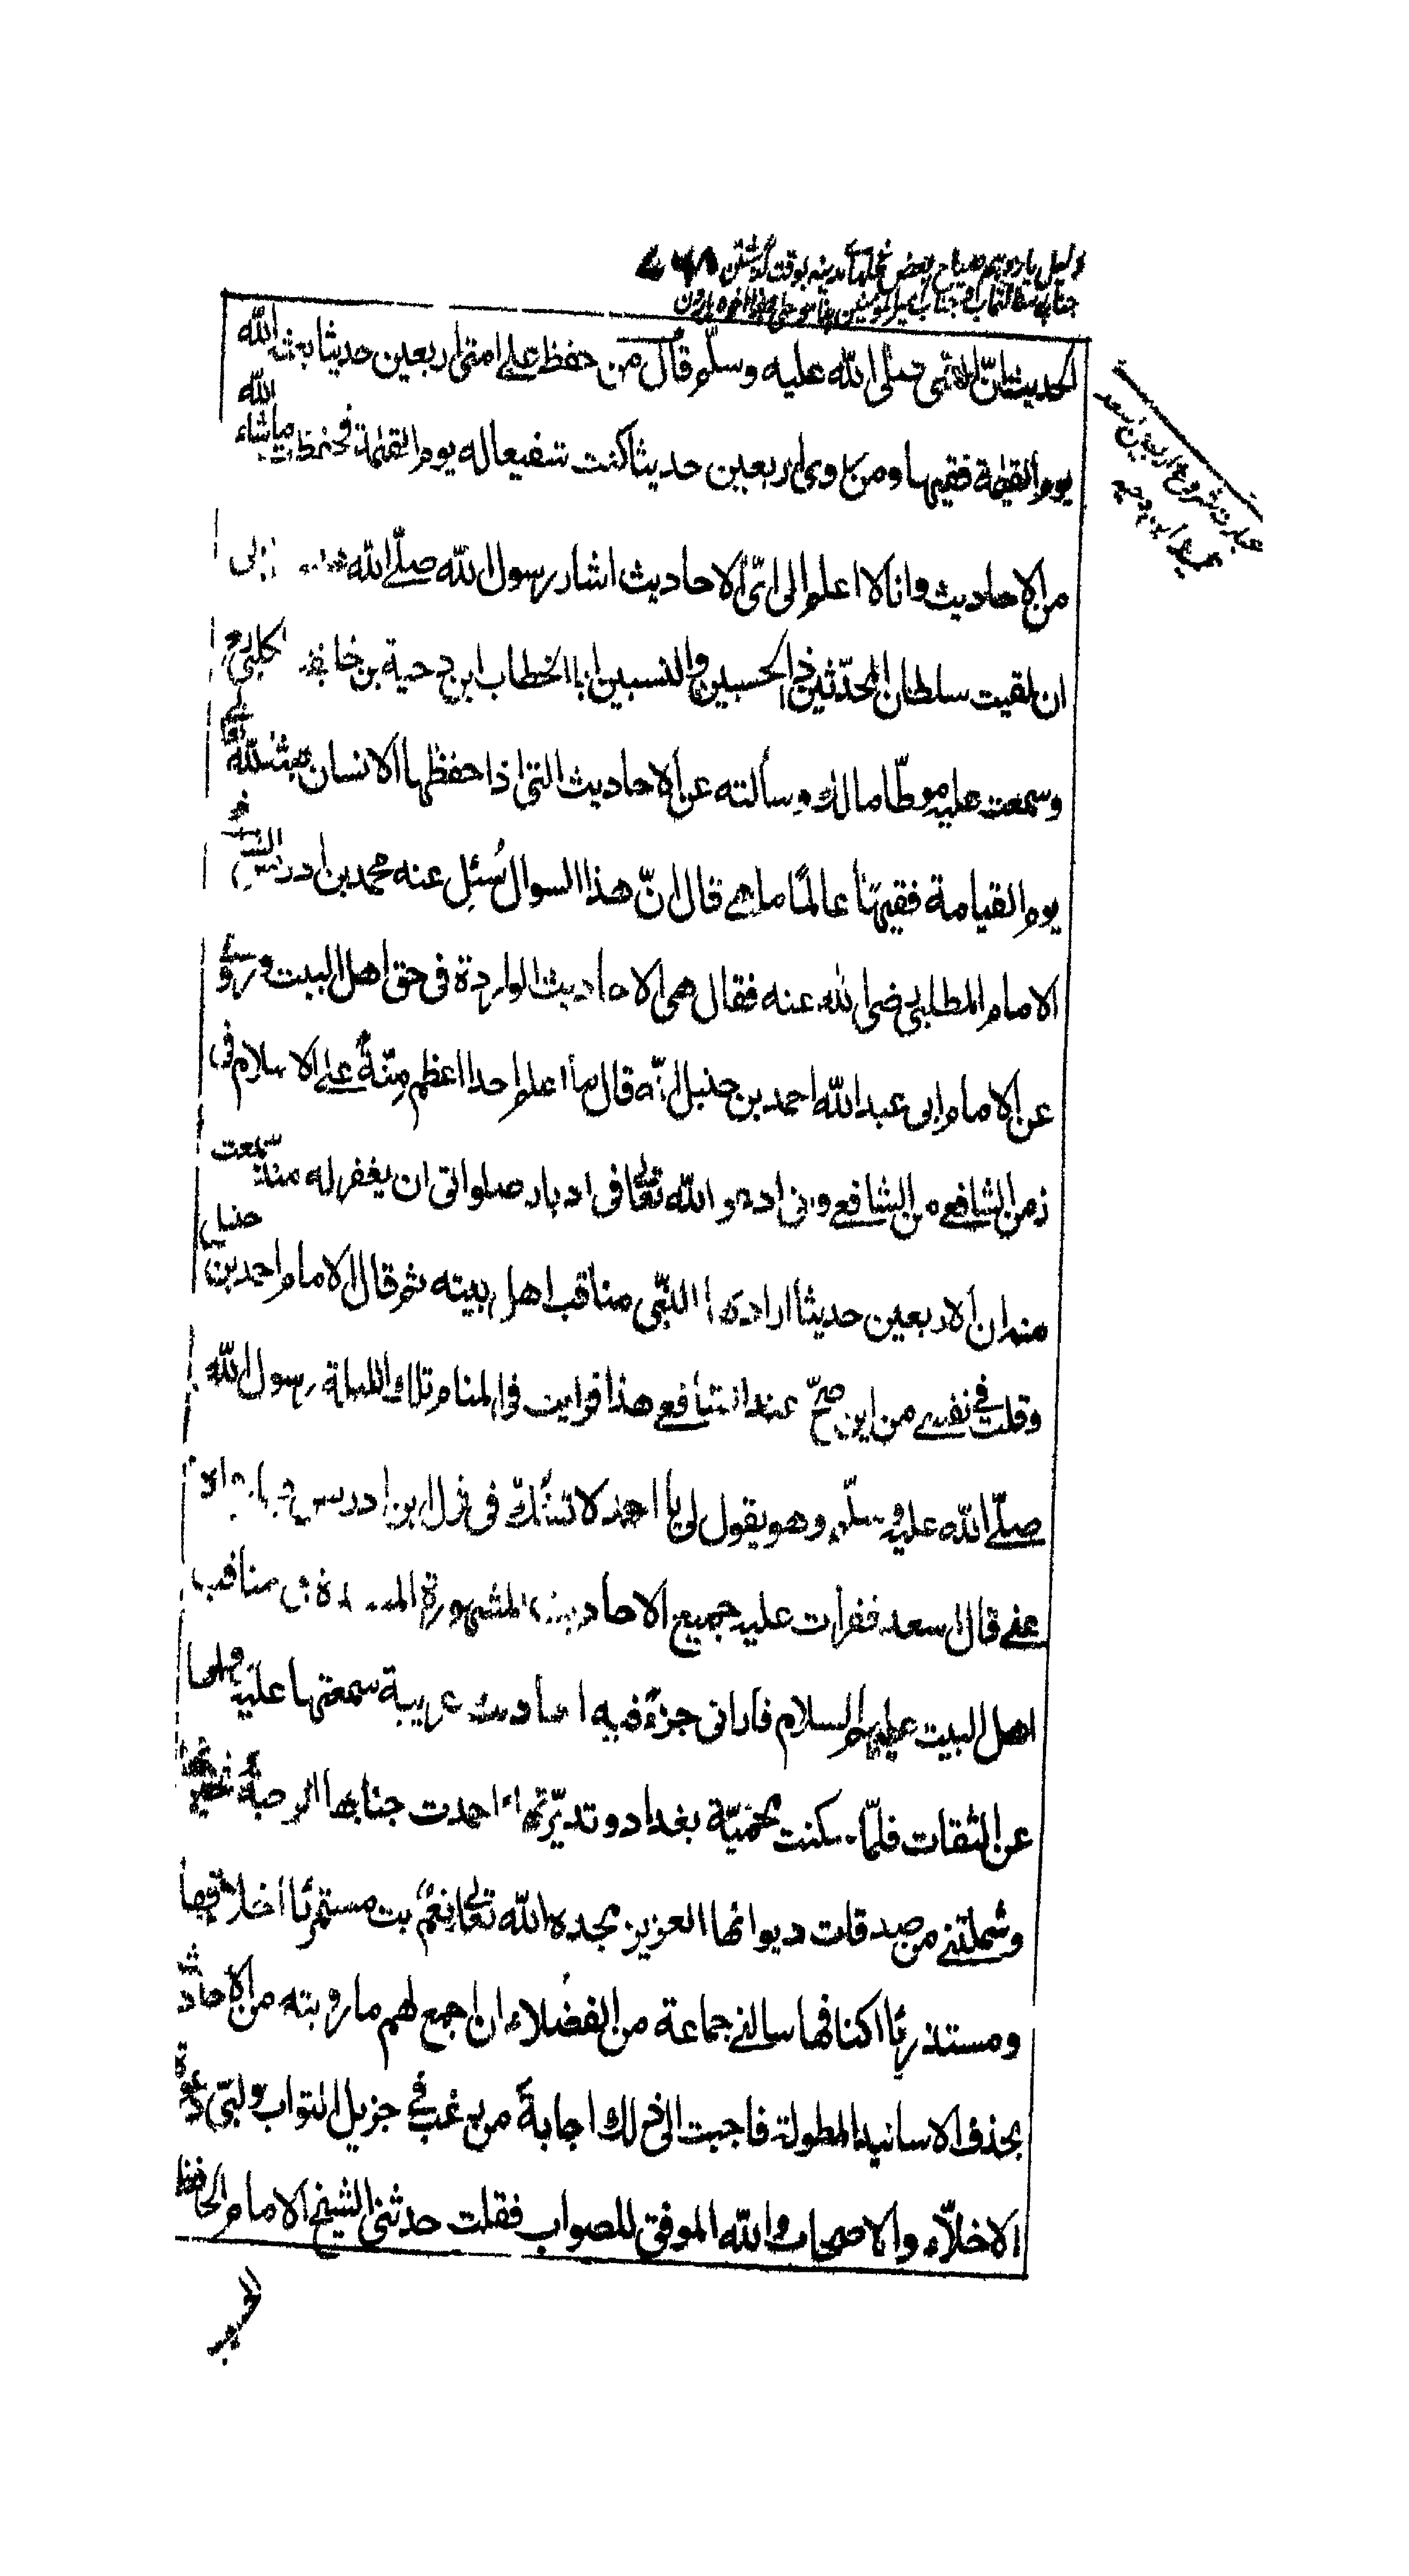 دليل يازدهم صياح بعض نخلهاے مدينه بوقت گذشتن
الحديث انّ النبى صلى الله عليه وسلّم قال من حفظ على امتى اربعين حديثا بعثه الله
يوم القيٰمة فقيها ومن روى اربعين حديثا كنت شفيعا له يوم القيٰمة فحفظت ماشاء الله
من الاحاديث وانا لا اعلم الى اىّ الاحاديث اشار رسول الله صلّى الله الى
ان لقيت سلطان المحدّثين ذى الحسبين والنسبين ابا الخطاب ابن دحية بن خليفة الكلبى
وسمعت عليه موطّا مالك وسألته عن الاحاديث التى اذا حفظها الانسان بعثه الله
يوم القيامة فقيها عالمًا ما هى قال انّ هذا السوال سُئِل عنه محمد بن ادريس الشافعى
الامام المطلبى رضى الله عنه فقال هى الاحاديث الواردة فى حق اهل البيت و
عن الامام ابى عبد الله احمد بن حنبل انّه قال ما اعلم احدا اعظم مِنّةً على الاسلام فى
زمن الشافعى من الشافعى وانى ادعو الله تعالى فى ادبار صلواتى ان يغفر له منذ سمعت
منه ان الاربعين حديثا اراد بها النبّى مناقب اهل بيته ثم قال الامام احمد بن حنبل
وقلت فى نفسى من اين صحّ عند الشافعى هذا فرايت فى المنام تلك الليلة رسول الله
صلّى الله عليه وسلّم وهو يقول لى يا احمد لا تشكّ فى قول ابن ادريس
عنى قال اسعد فقرات عليه جميع الاحاديث المشهورة فى مناقب
اهل البيت عليهم السلام فارانى جزءً فيه احاديث غريبة سمعتها عليه
عن الثقات فلمّا سكنت بغداد وتديّرتها احمدت جنابها الرحبة
وشملتنى من صدقات ديوانها العزيز مجده الله تعالى نِعَم بت مستمرئا اخلافها
ومستذرئا اكنافها سالنى جماعة من الفضلاء ان اجمع لهم ما رويته من الاحاديث
بحذف الاسانيد المطولة فاجبت الى ذلك اجابة من رغب فى جزيل الثواب ولبّى دعوة
الاخلّاء والاصحاب والله الموفق للصواب فقلت حدثنى الشيخ الامام الحافظ